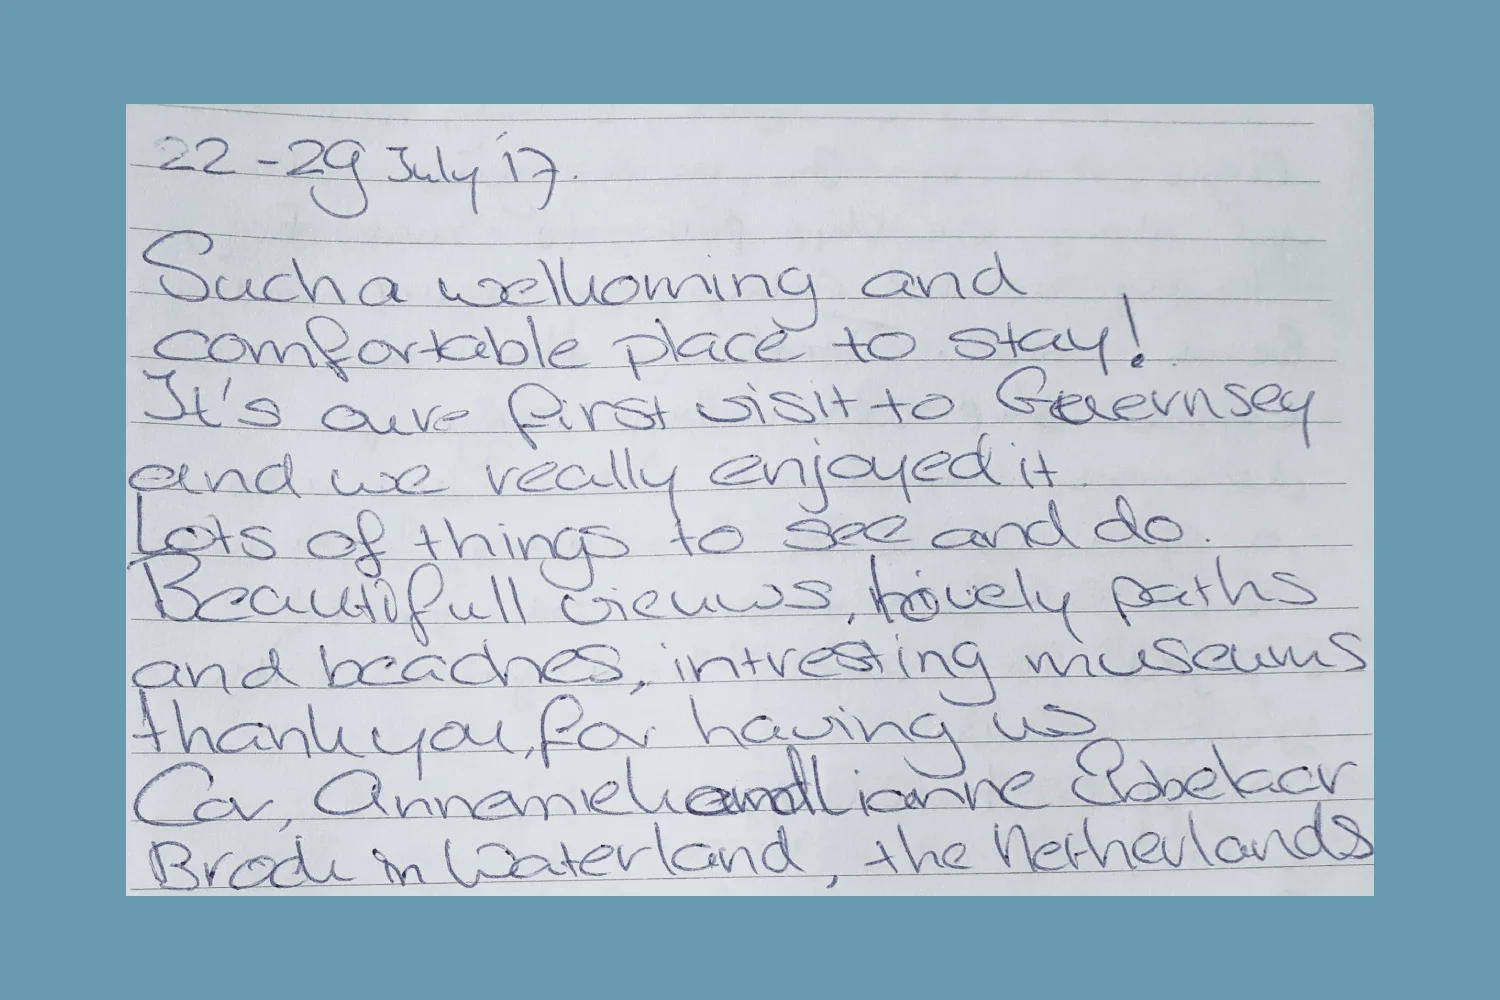 22 - 29 July '17.
Such a welkoming and
comfortable place to stay!
It's oure first visit to Guernsey
and we really enjoyed it
Lots of things to see and do.
Beautifull vieuws, lovely paths
and beaches, intresting museums
thank you, for having us
Cor, Annemiek and Lianne
Broek in Waterland, the Netherlands